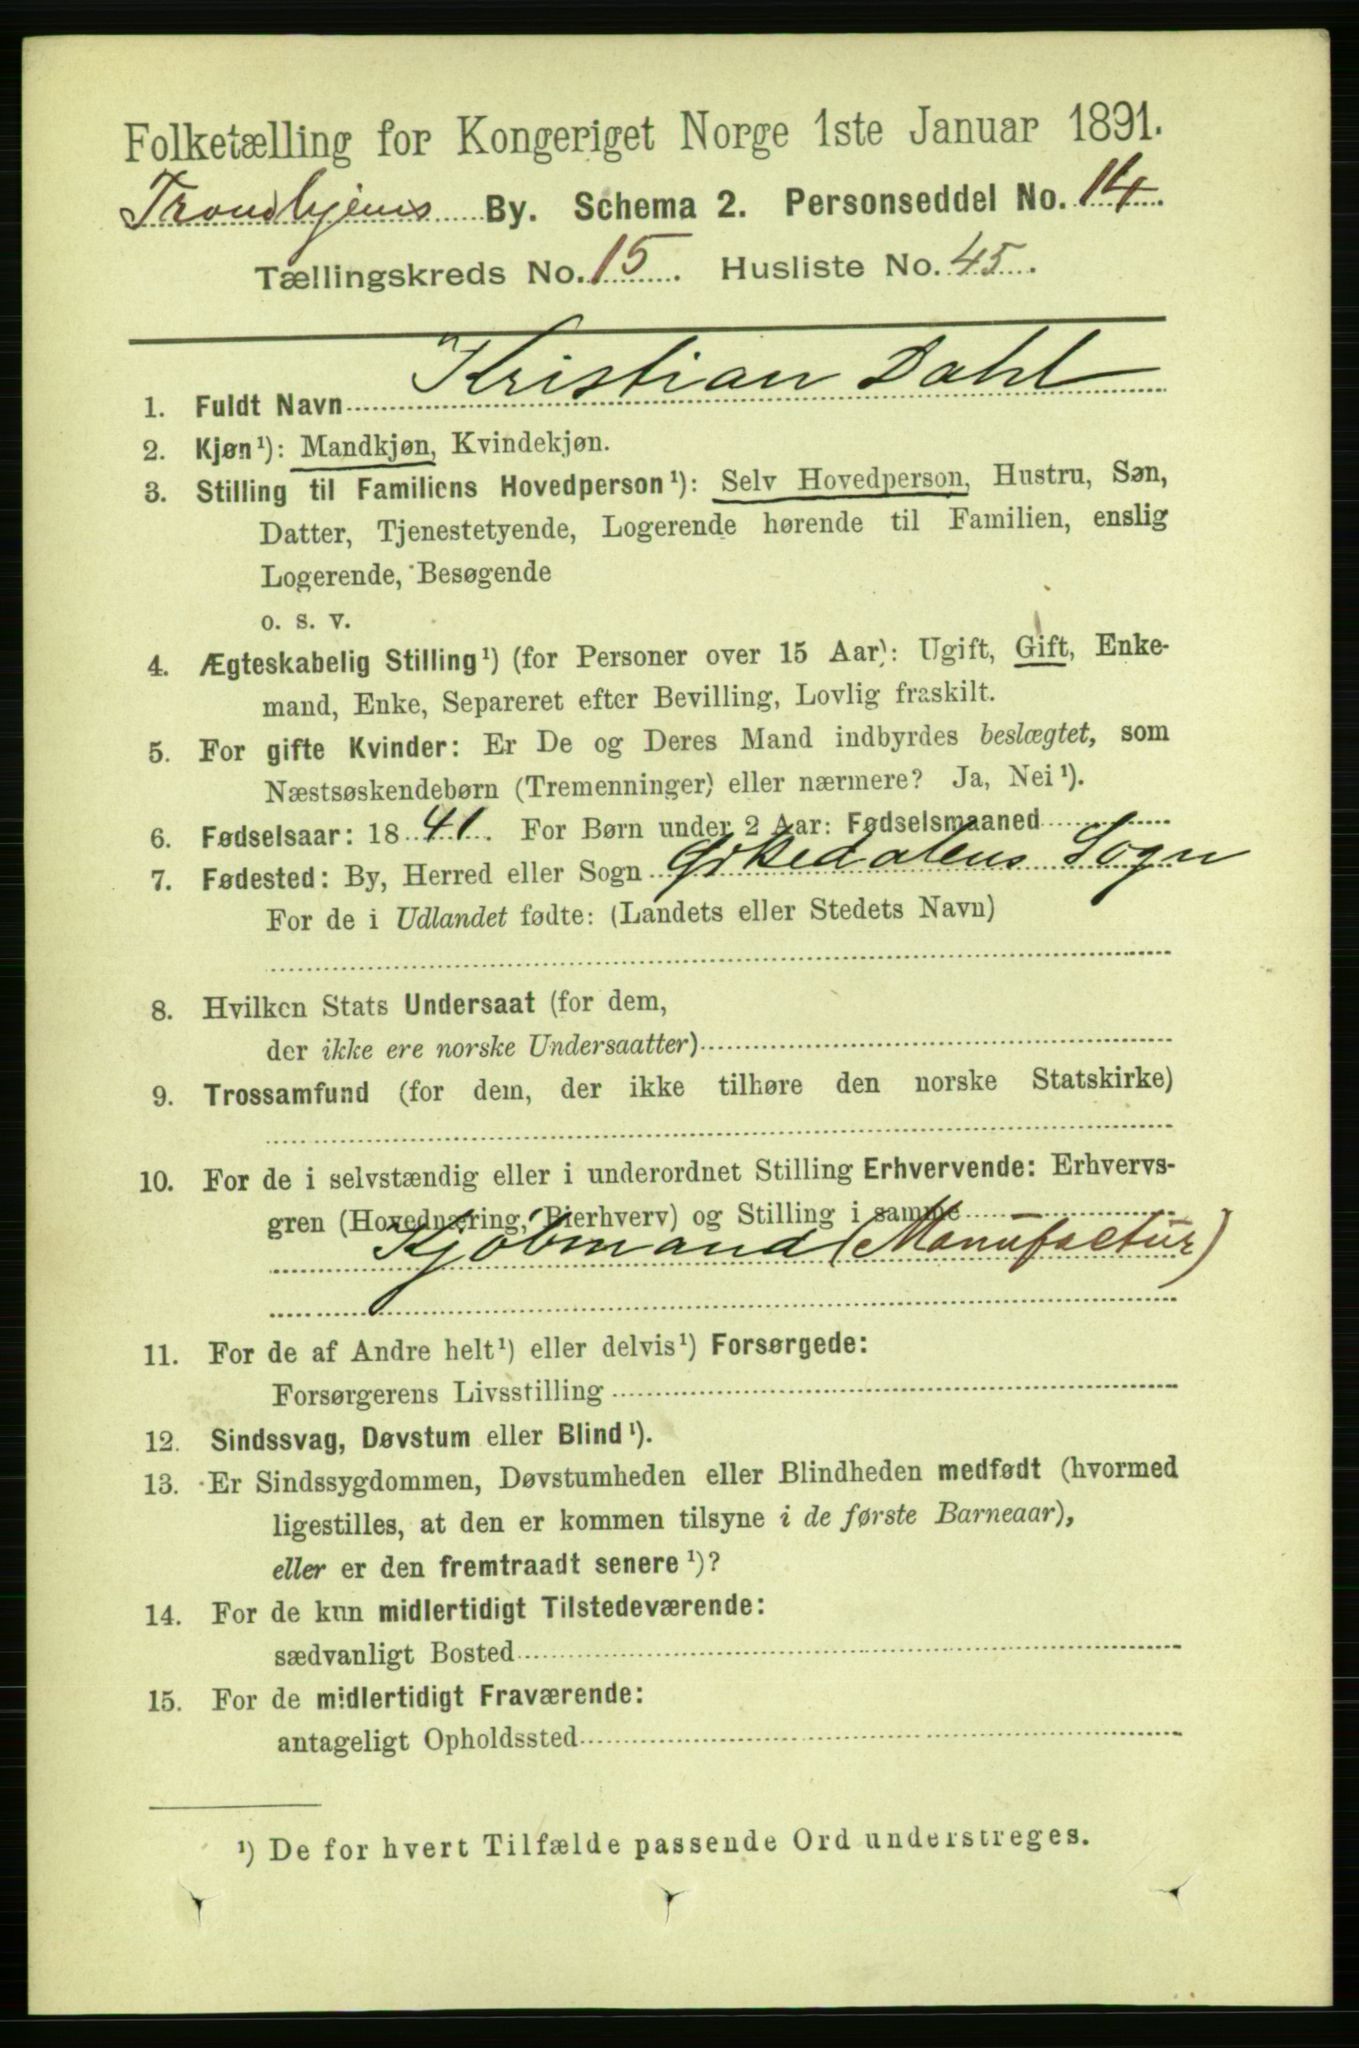 Folketælling for Kongeriget Norge 1ste Januar 1891.
Trondhjems By. Schema 2. Personseddel No. 14.
Tællingskreds No. 15. Husliste No. 45.
1. Fuldt Navn Kristian Dahl
2. Kjøn¹): Mandkjøn, Kvindekjøn.
3. Stilling til Familiens Hovedperson¹): Selv Hovedperson, Hustru, Søn,
Datter, Tjenestetyende, Logerende hørende til Familien, enslig
Logerende, Besøgende
o. s. v.
4. Ægteskabelig Stilling¹) (for Personer over 15 Aar): Ugift, Gift, Enke-
mand, Enke, Separeret efter Bevilling, Lovlig fraskilt.
5. For gifte Kvinder: Er De og Deres Mand indbyrdes beslægtet, som
Næstsøskendebørn (Tremenninger) eller nærmere? Ja, Nei¹).
6. Fødselsaar: 1841. For Børn under 2 Aar: Fødselsmaaned
7. Fødested: By, Herred eller Sogn Ørkedalens Sogn
For de i Udlandet fødte: (Landets eller Stedets Navn)
8. Hvilken Stats Undersaat (for dem,
der ikke ere norske Undersaatter)
9. Trossamfund (for dem, der ikke tilhøre den norske Statskirke)
10. For de i selvstændig eller i underordnet Stilling Erhvervende: Erhvervs-
gren (Hovednæring, Bierhverv) og Stilling i samme
Kjøbmand (Manufactur)
11. For de af Andre helt¹) eller delvis¹) Forsørgede:
Forsørgerens Livsstilling
12. Sindssvag, Døvstum eller Blind¹).
13. Er Sindssygdommen, Døvstumheden eller Blindheden medfødt (hvormed
ligestilles, at den er kommen tilsyne i de første Barneaar),
eller er den fremtraadt senere¹)?
14. For de kun midlertidigt Tilstedeværende:
sædvanligt Bosted
15. For de midlertidigt Fraværende:
antageligt Opholdssted
¹) De for hvert Tilfælde passende Ord understreges.